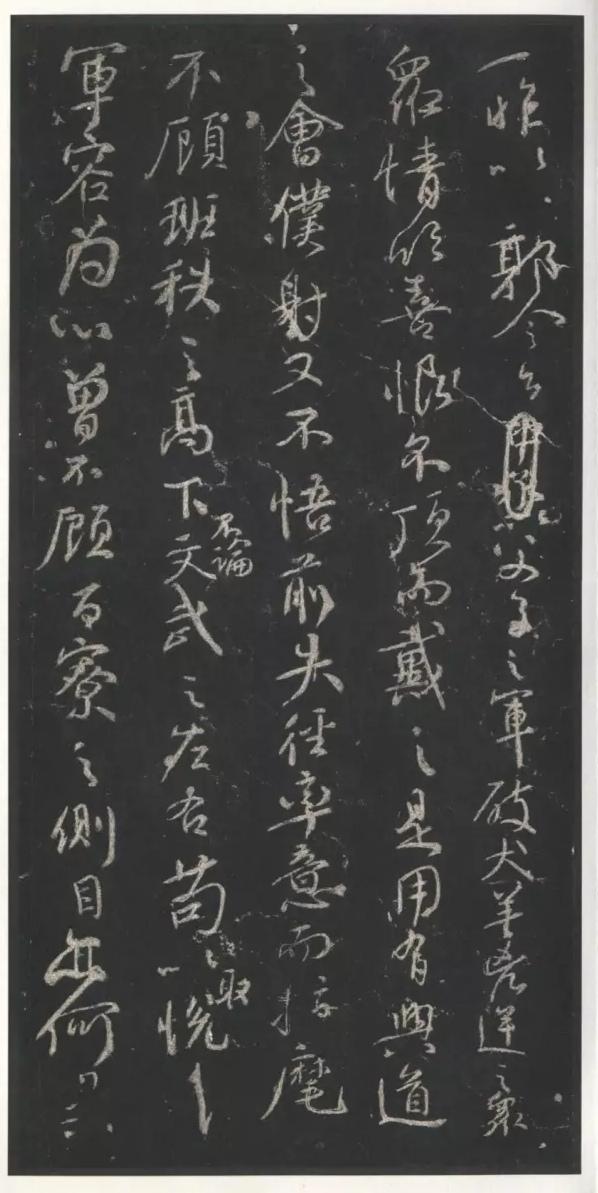 一昨以郭令公以父子之軍破犬羊凶逆之眾
眾情欣喜恨不頂而戴之是用有興道
之會僕射又不悟前失徑率意而指麾
不顧班秩之高下不論文武之左右苟以取悅
軍容為心曾不顧百寮之側目亦何異